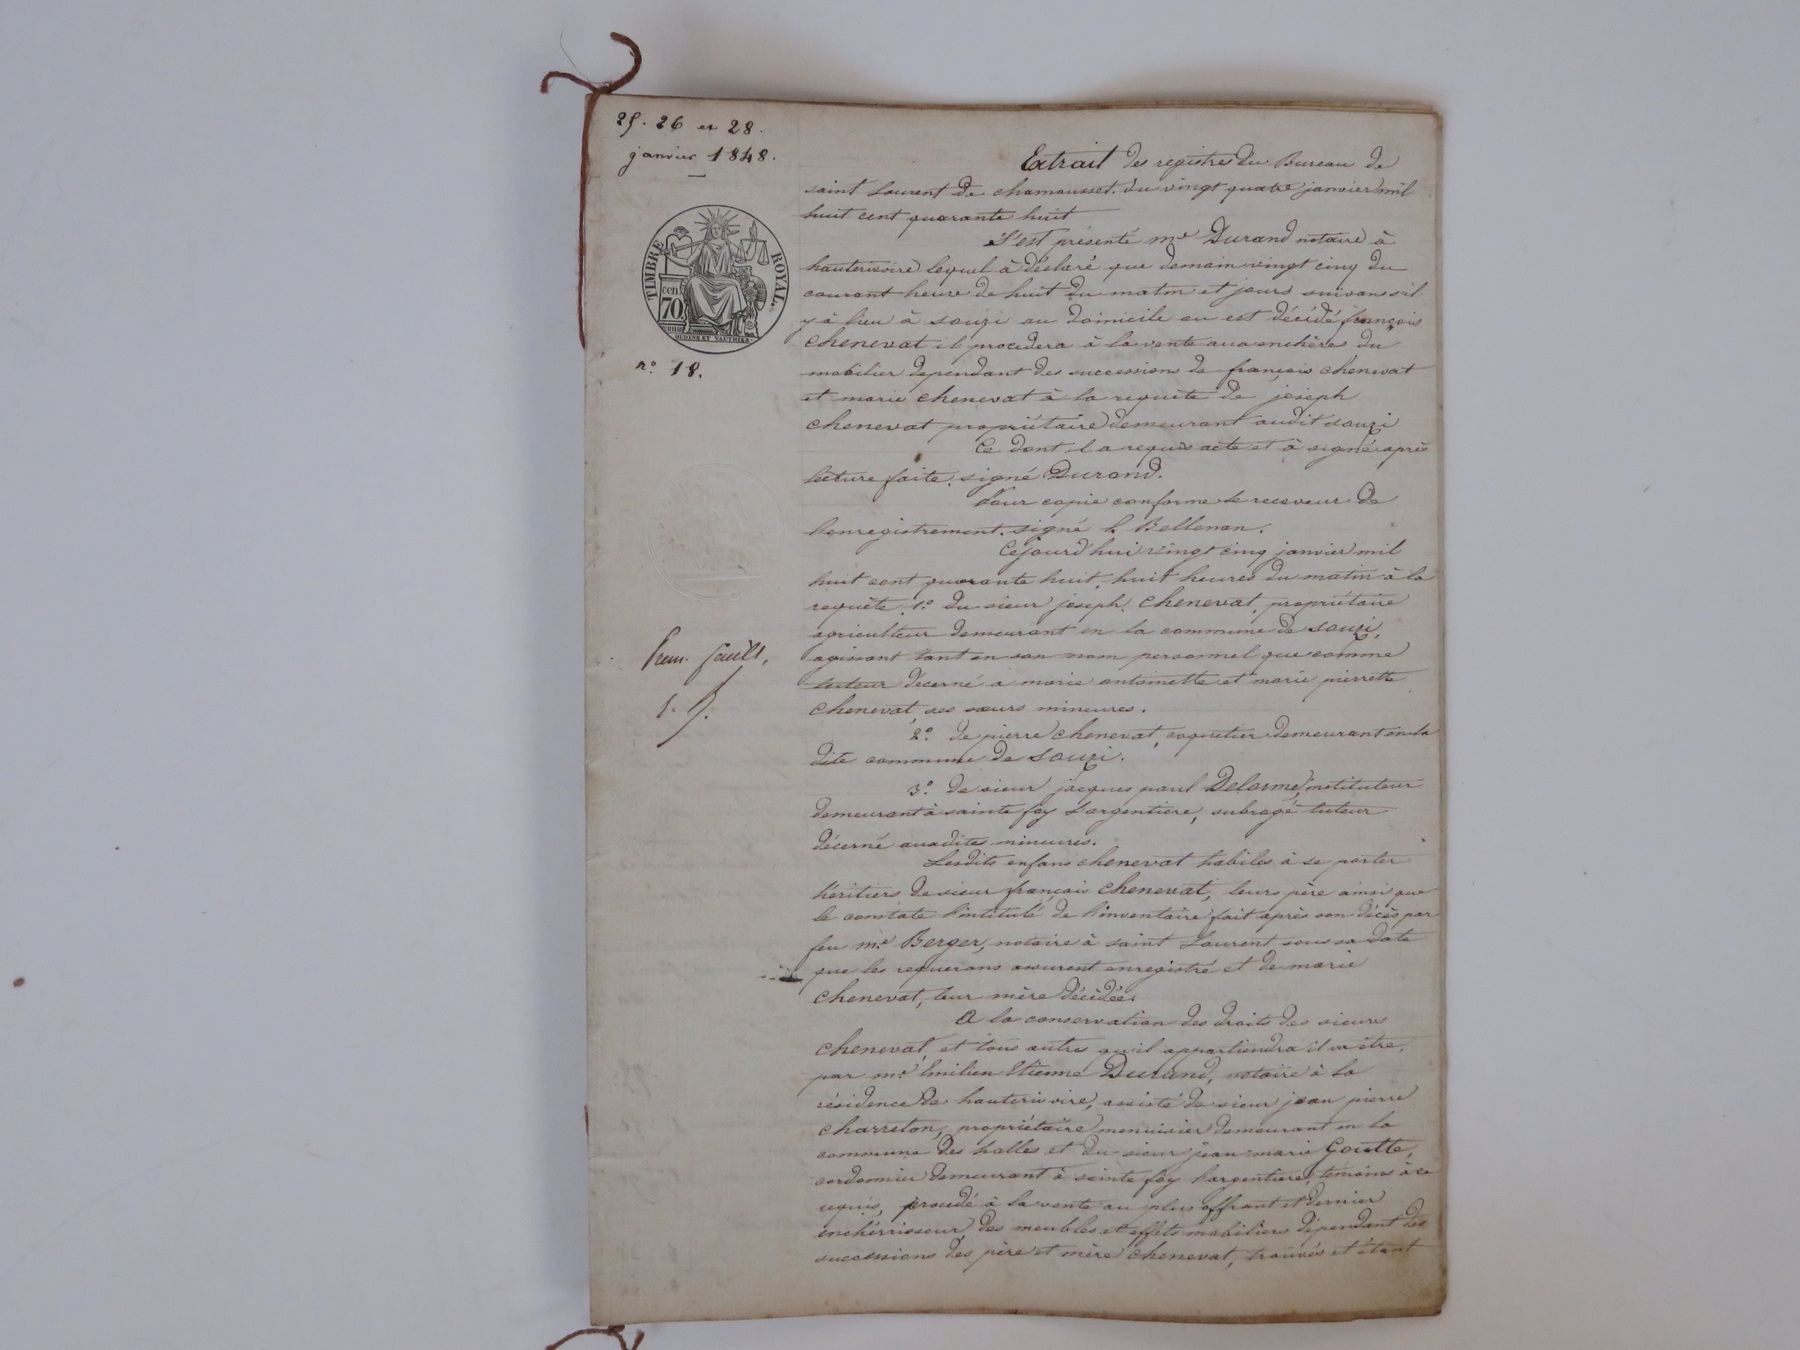 25. 26 et 28.
janvier 1848.
TIMBRE ROYAL.
cen
70
n.o 18.
Extrait des registres du Bureau de
saint Laurent de chamousset. du vingt quatre janvier mil
huit cent quarante huit
S'est présenté me Durand notaire à
hauterivoire lequel à déclaré que demain vingt cinq du
courant heure de huit du matin et jours suivans s'il
y à lieu à souzi au domicile ou est décédé françois
chenevat il procedera à la vente aux enchères du
mobilier dependant des successions de françois chenevat
et marie chenevat à la requète de joseph
chenevat propriétaire demeurant audit souzi
Ce dont il a requis acte et à signé après
lecture faite. signé Durand.
Pour copie conforme le receveur de
lenregistrement. signé Belleman.
Cejourd'hui vingt cinq janvier mil
huit cent quarante huit, huit heures du matin à la
requète 1.o du sieur joseph chenevat, propriétaire
agriculteur demeurant en la commune de souzi,
agissant tant en son nom personnel que comme
tuteur décerné a marie antoinette et marie pierrette
chenevat, ses sœurs mineures.
2.o de pierre chenevat, coquetier demeurant en la
dite commune de souzi.
3.o de sieur jacques paul Delorme, instituteur
demeurant à sainte foy Largentiere, subrogé tuteur
décerné auxdites mineures.
Lesdits enfans chenevat habiles à se porter
héritiers de sieur françois chenevat, leurs père ainsi que
le constate l'intitulé de l'inventaire fait après son décès par
feu me Berger, notaire à saint Laurent sous sa date
que les requerans assurent enregistré et de marie
chenevat, leur mère décédée.
A la conservation des droits des sieurs
chenevat, et tous autre qu'il appartiendra il va être,
par me Emilien Etienne Durand, notaire à la
résidence de hauterivoire, assisté de sieur jean pierre
charreton, propriétaire menuisier demeurant en la
commune des halles et du sieur jean marie Goutte,
cordonnier demeurant à sainte foy largentiere, témoins à ce
requis, procédé à la vente au plus offrant et dernier
enchérisseur, des meubles et effets mobiliers dépendant des
successions des père et mère chenevat, trouvés et étant